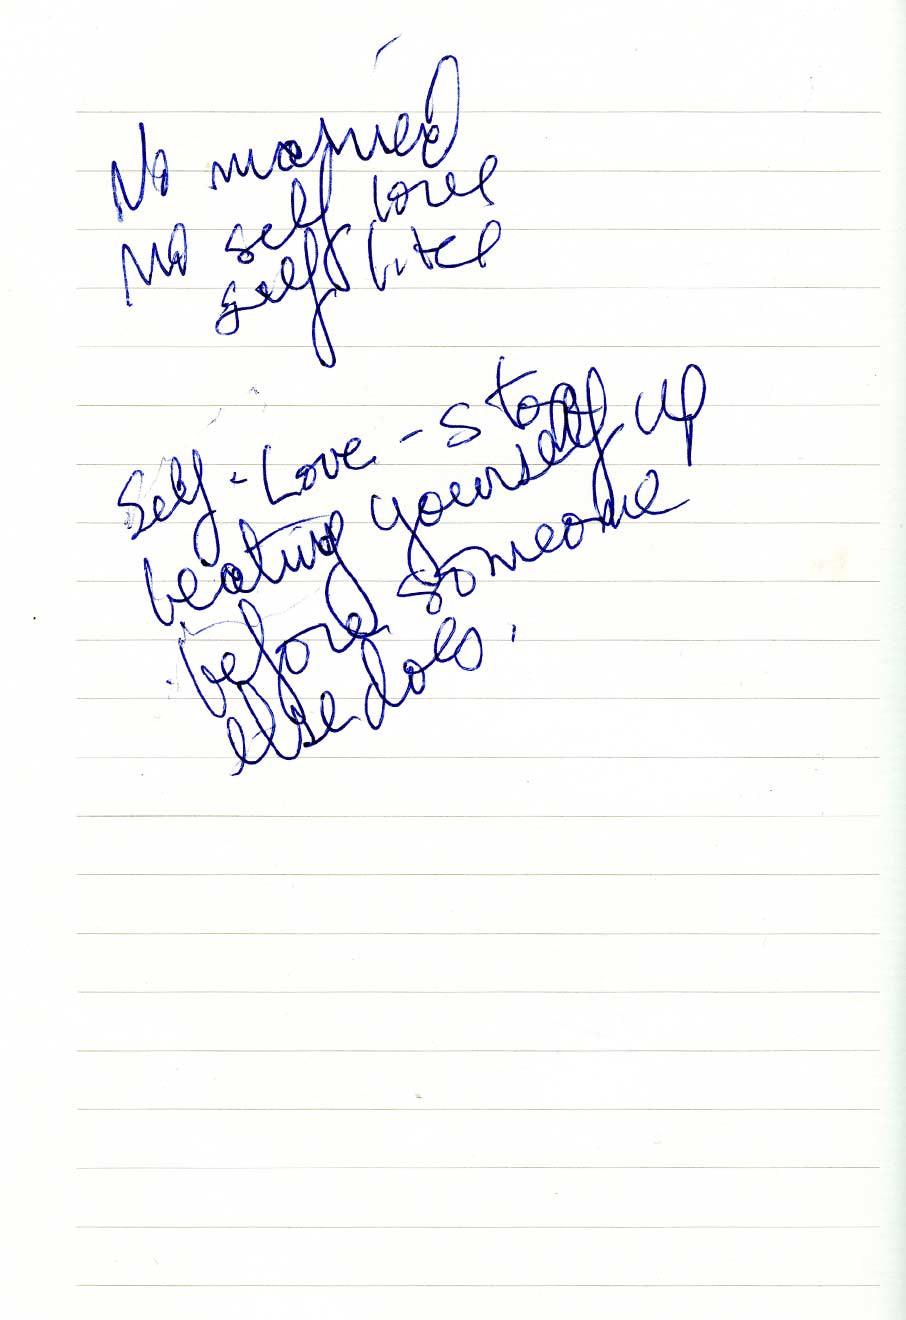 No married
No self love
self
Self-Love - Stop
beating yourself up
before someone
else does.